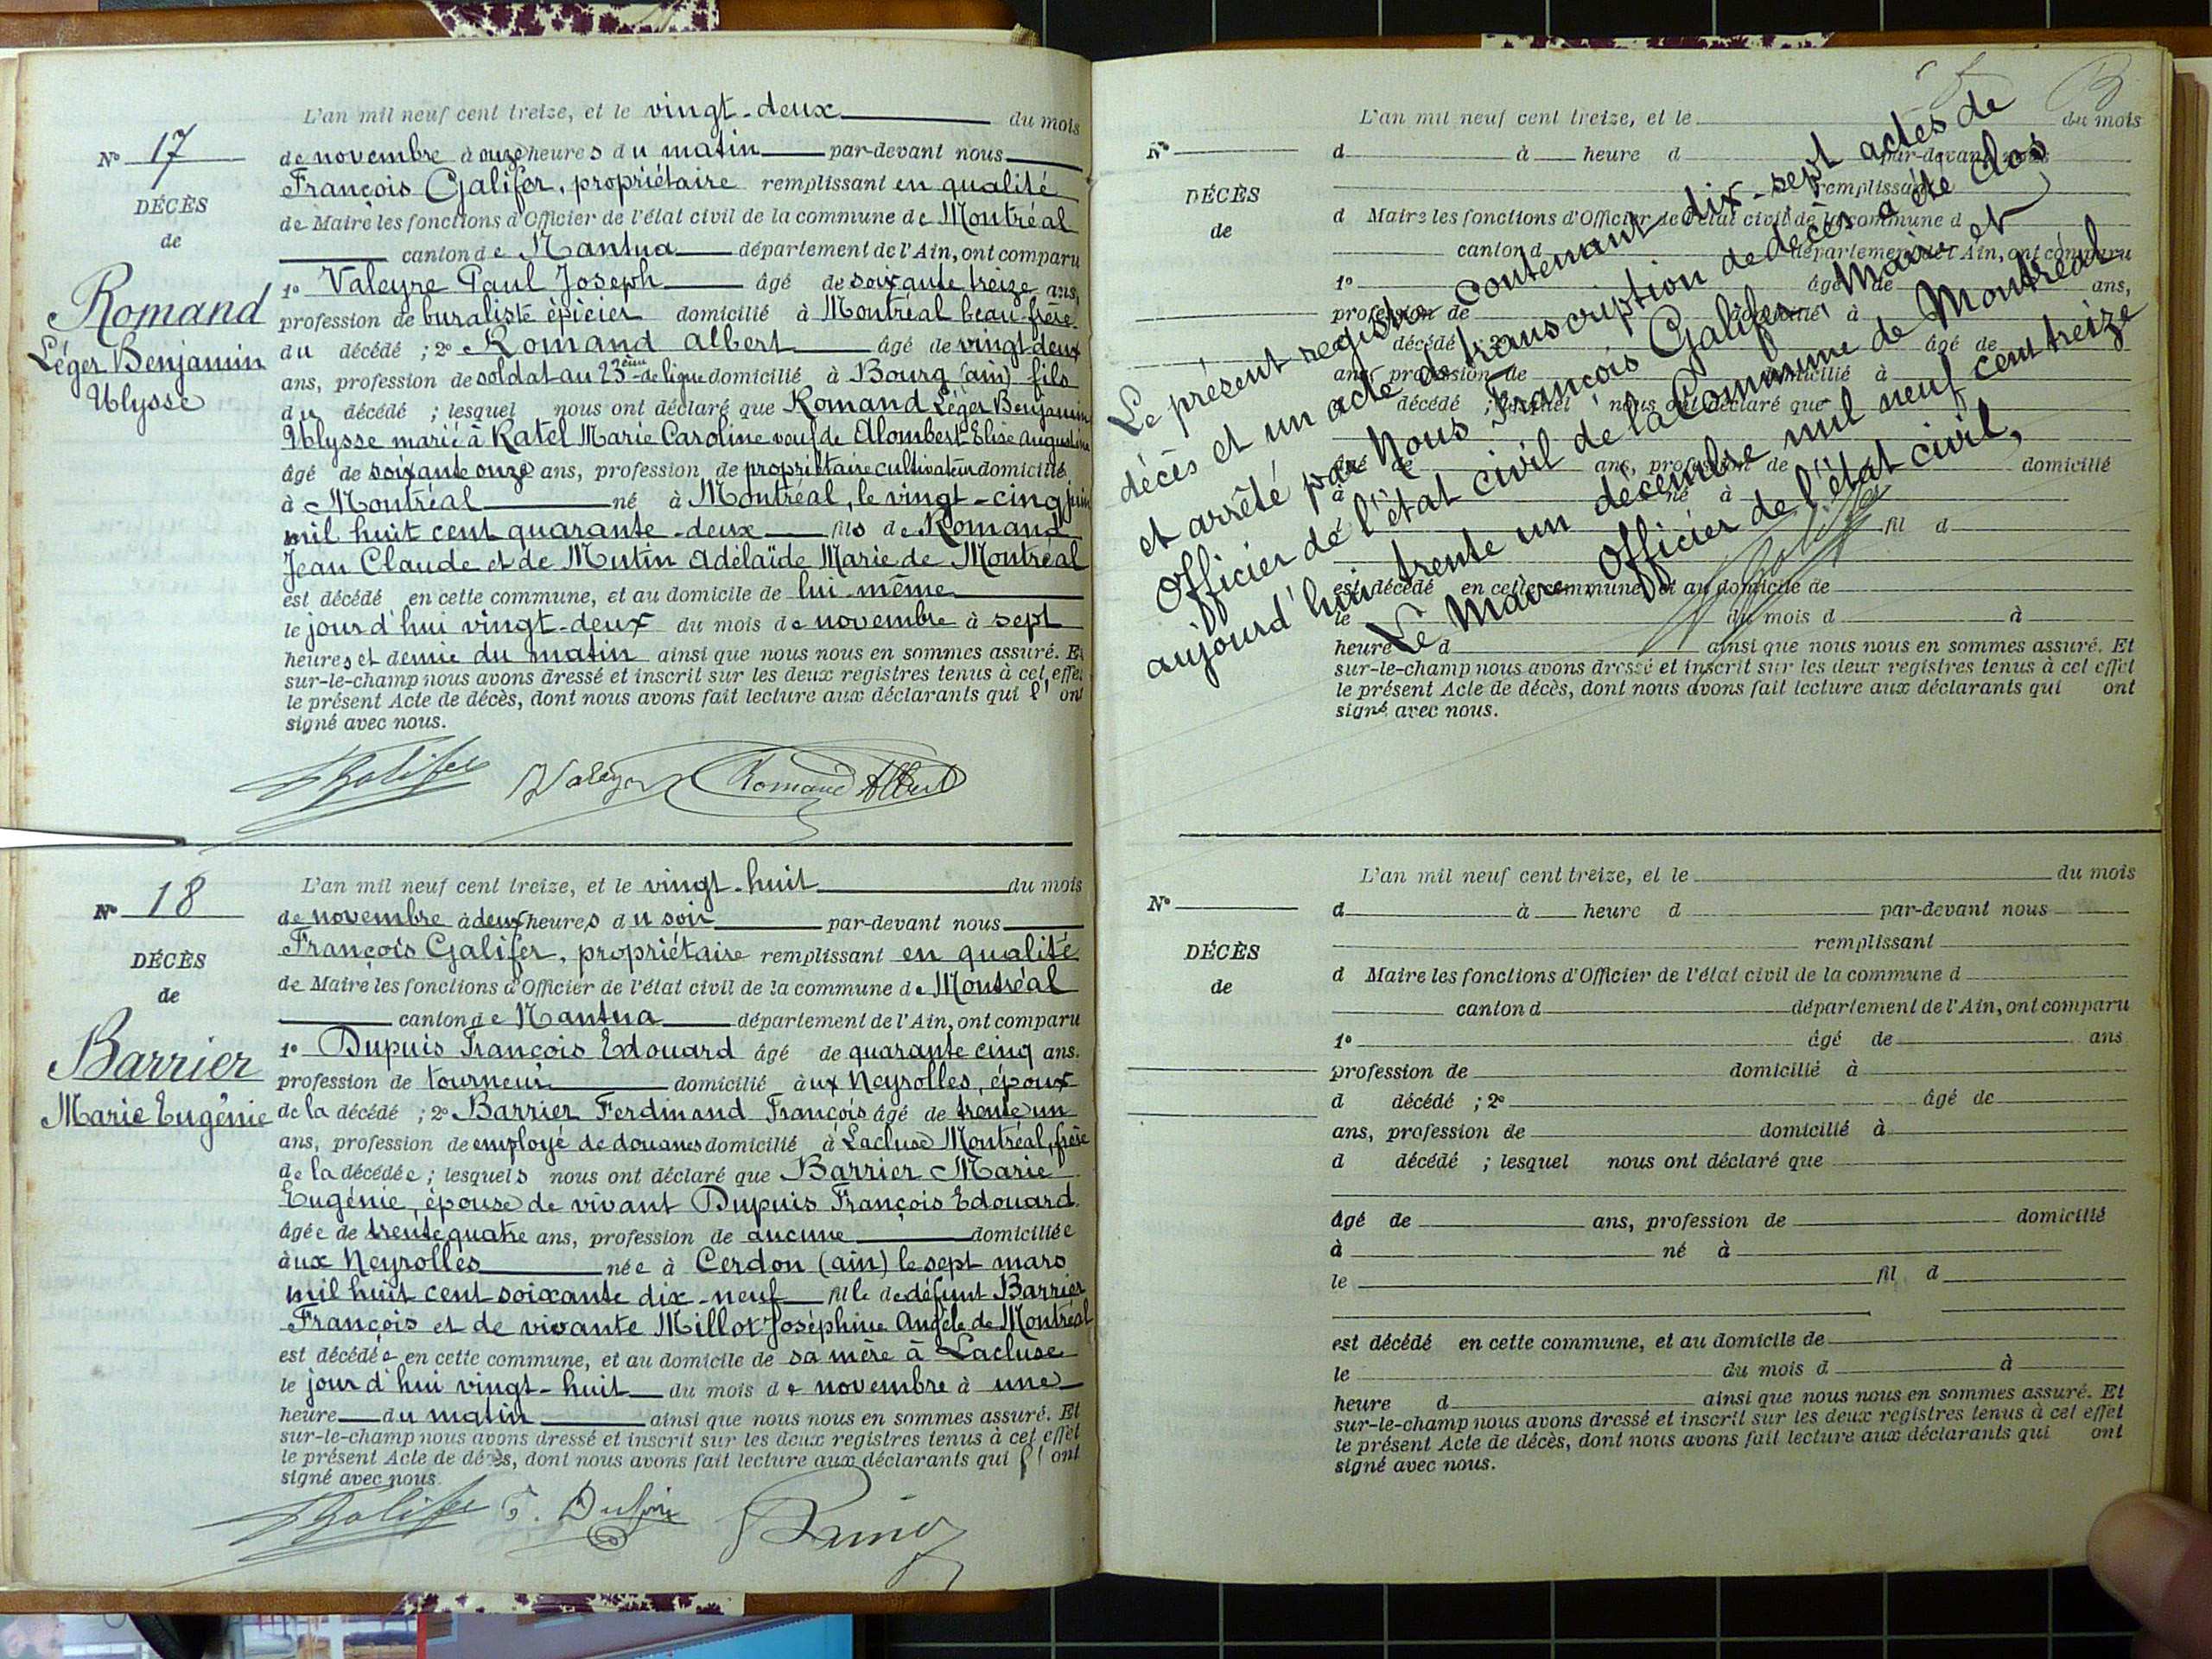 L'an mil neuf cent treize, et le vingt-deux du mois
N° 17
de novembre à onze heures du matin par-devant nous
François Galifer, propriétaire remplissant en qualité
DÉCÈS
de Maire les fonctions d'Officier de l'état civil de la commune de Montréal
de
canton de Nantua département de l'Ain, ont comparu
1° Valeyre Paul Joseph âgé de soixante treize ans,
Romand
profession de buraliste épicier domicilié à Montréal beau frère
Léger Benjamin
du décédé ; 2° Romand Albert âgé de vingt deux
Ulysse
ans, profession de soldat au 23ème de ligne domicilié à Bourg (ain) fils
du décédé ; lesquel nous ont déclaré que Romand Léger Benjamin
Ulysse marié à Ratel Marie Caroline veuf de Alombert Elise Augustine
âgé de soixante onze ans, profession de propriétaire cultivateur domicilié
à Montréal né à Montréal, le vingt-cinq juin
mil huit cent quarante-deux fils de Romand
Jean Claude et de Mutin Adélaïde Marie de Montréal
est décédé en cette commune, et au domicile de lui-même
le jourd'hui vingt-deux du mois de novembre à sept
heures et demie du matin ainsi que nous nous en sommes assuré. Et
sur-le-champ nous avons dressé et inscrit sur les deux registres tenus à cet effet
le présent Acte de décès, dont nous avons fait lecture aux déclarants qui l'ont
signé avec nous.
Galifer Valeyre Romand Albert
L'an mil neuf cent treize, et le vingt-huit du mois
N° 18
de novembre à deux heures du soir par-devant nous
François Galifer, propriétaire remplissant en qualité
DÉCÈS
de Maire les fonctions d'Officier de l'état civil de la commune de Montréal
de
canton de Nantua département de l'Ain, ont comparu
Barrier
1° Dupuis François Edouard âgé de quarante cinq ans.
profession de tourneur domicilié aux Neyrolles, époux
Marie Eugénie
de la décédé ; 2° Barrier Ferdinand François âgé de trente un
ans, profession de employé de douanes domicilié à Lacluse Montréal, frère
de la décédée ; lesquels nous ont déclaré que Barrier Marie
Eugénie, épouse de vivant Dupuis François Edouard
âgée de trente quatre ans, profession de aucune domiciliée
aux Neyrolles née à Cerdon (ain) le sept mars
mil huit cent soixante dix-neuf fille de défunt Barrier
François et de vivante Millot Joséphine Angèle de Montréal
est décédée en cette commune, et au domicile de sa mère à Lacluse
le jourd'hui vingt-huit du mois de novembre à une
heure du matin ainsi que nous nous en sommes assuré. Et
sur-le-champ nous avons dressé et inscrit sur les deux registres tenus à cet effet
le présent Acte de décès, dont nous avons fait lecture aux déclarants qui l'ont
signé avec nous.
Galifer F. Dupuis Barrier
L'an mil neuf cent treize, et le du mois
N°
d à heure d par-devant nous
remplissant
DÉCÈS
d Maire les fonctions d'Officier de l'état civil de la commune d
de
canton d département de l'Ain, ont comparu
1° âgé de ans,
profession de domicilié à
d décédé ; 2° âgé de
ans, profession de domicilié à
d décédé ; lesquel nous ont déclaré que
âgé de ans, profession de domicilié
à né à
le fil d
est décédé en cette commune, et au domicile de
le du mois d à
heure d ainsi que nous nous en sommes assuré. Et
sur-le-champ nous avons dressé et inscrit sur les deux registres tenus à cet effet
le présent Acte de décès, dont nous avons fait lecture aux déclarants qui ont
signé avec nous.
Le présent registre contenant dix-sept actes de
décès et un acte de transcription de décès a été clos
et arrêté par Nous François Galifer, Maire et
Officier de l'état civil de la Commune de Montréal
aujourd'hui trente un décembre mil neuf cent treize
Le Maire, Officier de l'état civil,
Galifer
L'an mil neuf cent treize, et le du mois
N°
d à heure d par-devant nous
remplissant
DÉCÈS
d Maire les fonctions d'Officier de l'état civil de la commune d
de
canton d département de l'Ain, ont comparu
1° âgé de ans
profession de domicilié à
d décédé ; 2° âgé de
ans, profession de domicilié à
d décédé ; lesquel nous ont déclaré que
âgé de ans, profession de domicilié
à né à
le fil d
est décédé en cette commune, et au domicile de
le du mois d à
heure d ainsi que nous nous en sommes assuré. Et
sur-le-champ nous avons dressé et inscrit sur les deux registres tenus à cet effet
le présent Acte de décès, dont nous avons fait lecture aux déclarants qui ont
signé avec nous.